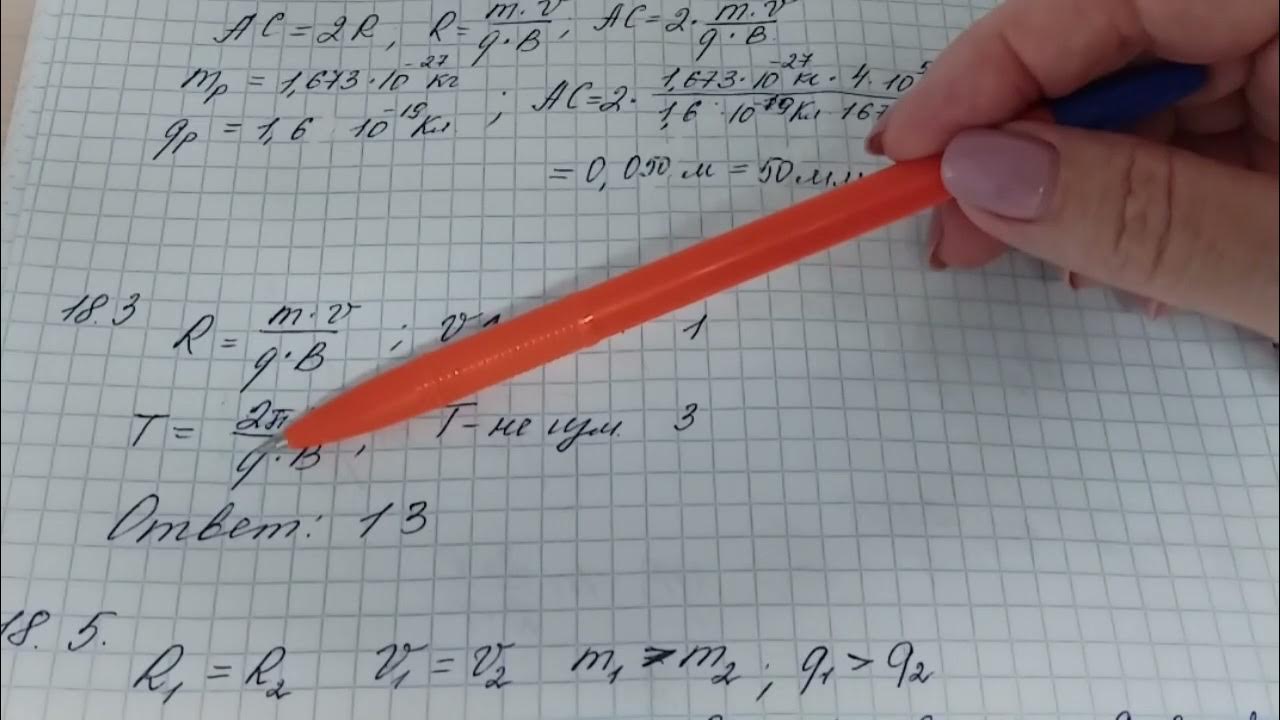 AC = 2R, R = m·v / q·B ; AC = 2· m·v / q·B
m_p = 1,673·10^-27 кг
q_p = 1,6 10^-19 Кл ; AC = 2· 1,673·10^-27 кг · 4·10^5 / 1,6·10^-19 Кл · 167
= 0,050 м = 50 мм
18.3 R = m·v / q·B ; 1
T = 2π / q·B ; T - не изм. 3
Ответ: 13
18.5.
R₁ = R₂ v₁ = v₂ m₁ > m₂ ; q₁ > q₂